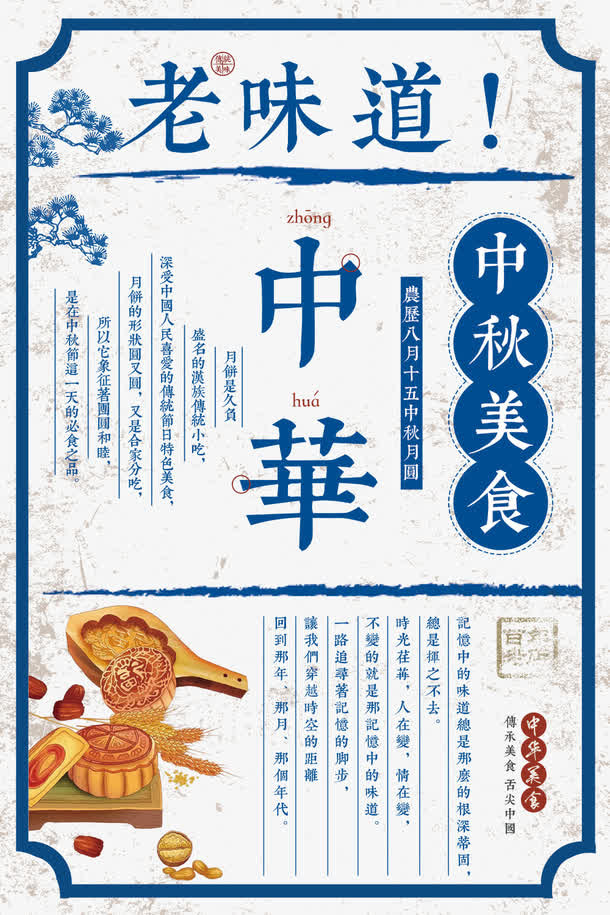 老味道！
傳統
美味
中秋美食
農歷八月十五中秋月圓
zhōng
中
huá
華
月餅是久負
盛名的漢族傳統小吃，
深受中國人民喜愛的傳統節日特色美食，
月餅的形狀圓又圓，又是合家分吃，
所以它象征著團圓和睦，
是在中秋節這一天的必食之品。
中华美食
傳承美食 舌尖中國
記憶中的味道總是那麼的根深蒂固，
總是揮之不去。
時光荏苒，人在變，情在變，
不變的就是那記憶中的味道。
一路追尋著記憶的脚步，
讓我們穿越時空的距離
回到那年、那月、那個年代。